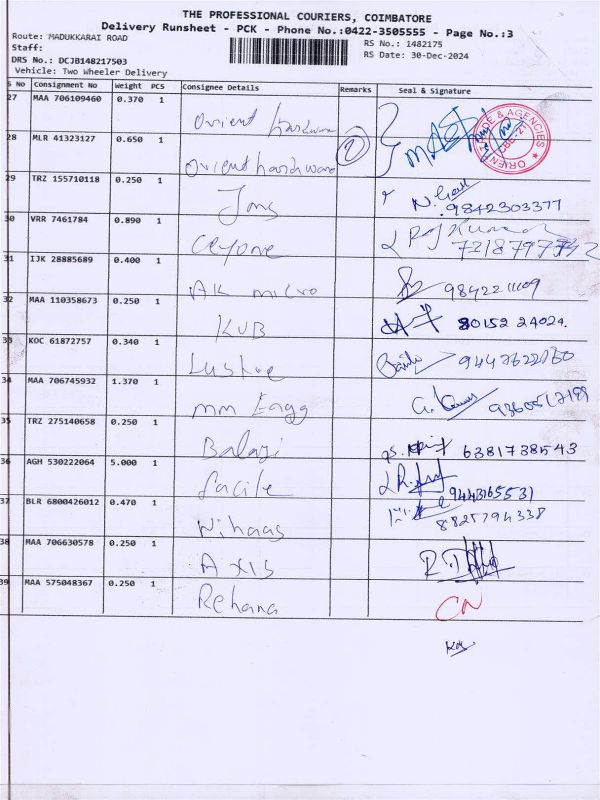 THE PROFESSIONAL COURIERS, COIMBATORE
Delivery Runsheet - PCK - Phone No.:0422-3505555 - Page No.:3
Route: MADUKKARAI ROAD
RS No.: 1482175
Staff:
RS Date: 30-Dec-2024
DRS No.: DCJB148217503
Vehicle: Two Wheeler Delivery
S No Consignment No Weight PCS Consignee Details Remarks Seal & Signature
27 MAA 706109460 0.370 1 Orient hardware
28 MLR 41323127 0.650 1 Orient hardware 2
ORIENT TRADE & AGENCIES
CBE-21
29 TRZ 155710118 0.250 1 Jms 9842303377
30 VRR 7461784 0.890 1 Ceyone
31 IJK 28885689 0.400 1 AK micro 9842211109
32 MAA 110358673 0.250 1 KVB 80152 24024.
33 KOC 61872757 0.340 1 9447622060
34 MAA 706745932 1.370 1 mm Engg
35 TRZ 275140658 0.250 1 Balaji 6381738543
36 AGH 530222064 5.000 1 Facile 9443165531
37 BLR 6800426012 0.470 1 Nihaas 8825794338
38 MAA 706630578 0.250 1 Axis
39 MAA 575048367 0.250 1 Rehana CN